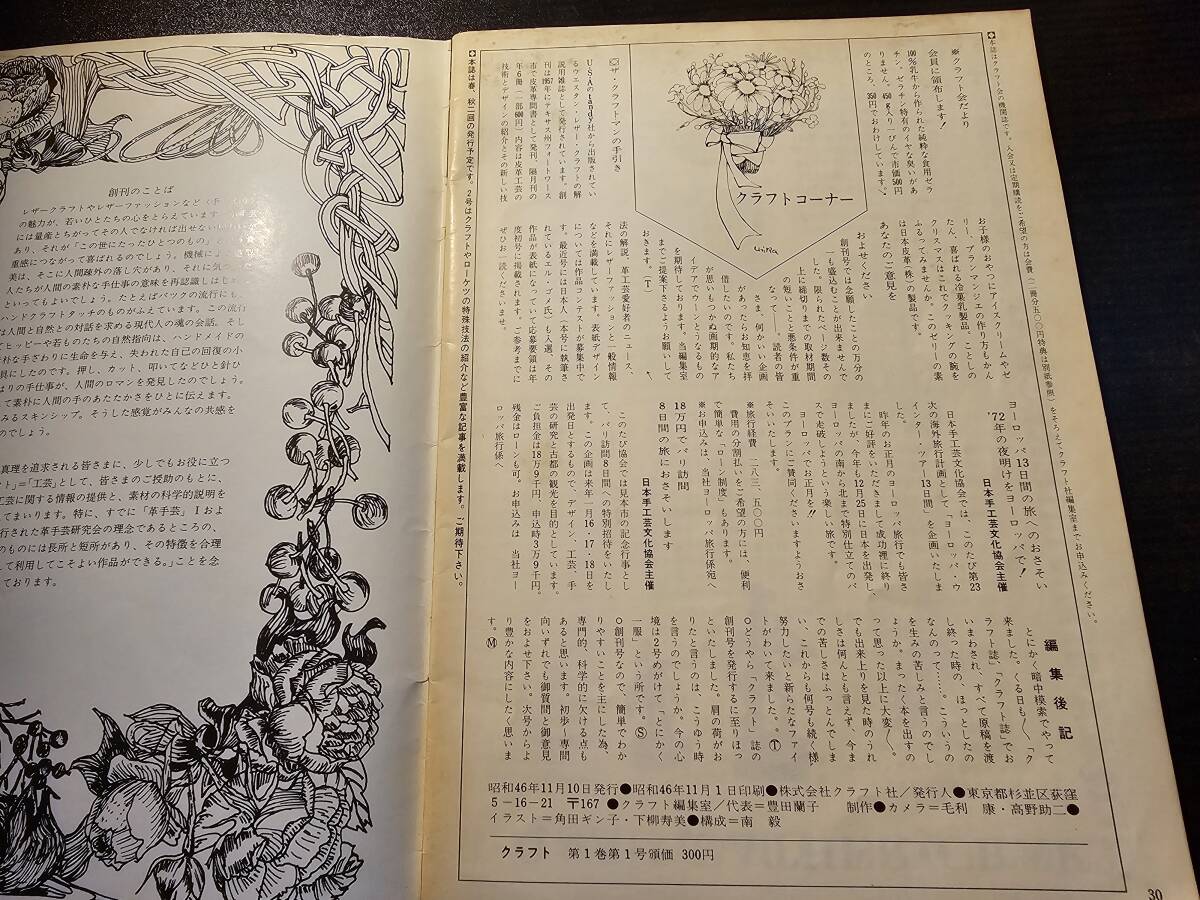 創刊のことば
レザークラフトやレザーファッションなど
の魅力が、若いひとたちの心をとらえています
には量産とちがってその人でなければ出せない
あり、それが「この世にたったひとつのもの」
重感につながって喜ばれるのでしょう。機械に
美は、そこに人間疎外の落し穴があり、それに気づ
人たちが人間の素朴な手仕事の意味を再認識しはじめ
といってもよいでしょう。たとえばバックの流行にも、
ハンドクラフトタッチのものがふえています。この流行
は人間と自然との対話を求める現代人の魂の会話。そし
てヒッピーや若ものたちの自然指向は、ハンドメイドの
朴な手ざわりに生命を与え、失われた自己の回復の小
具にしたのです。押し、カット、叩いてなどひと針ひ
はりの手仕事が、人間のロマンを発見したのでしょう。
て素朴に人間の手のあたたかさをひとに伝えます。
みるスキンシップ。そうした感覚がみんなの共感を
のでしょう。
真理を追求される皆さまに、少しでもお役に立つ
ト」=「工芸」として、皆さまのご援助のもとに、
工芸に関する情報の提供と、素材の科学的説明を
てまいります。特に、すでに「革手芸」1およ
行された革手芸研究会の理念であるところの、
のものには長所と短所があり、その特徴を合理
して利用してこそよい作品ができる。」ことを念
ております。
✿本誌はクラフト会の機関誌です。入会又は定期購読をご希望の方は会費(二冊分五〇〇円特典は別紙参照)をそろえてクラフト社編集室までお申込みください。
※クラフト会だより
会員に頒布します!
100%乳牛から作られた純粋な食用ゼラ
チン。ゼラチン特有のイヤな臭いがあ
りません。450g入り一びんで市価500円
のところ、350円でおわけしています。
クラフトコーナー
✿ザ・クラフトマンの手引き
U・S・Aのtandy社から出版されてい
るウエスタン・レザー・クラフトの解
説用雑誌として発行されています。創
刊は1957年にテキサス州フォートワース
市で皮革専門書として発刊、隔月刊の
年6冊(一部600円)内容は皮革工芸の
技術とデザインの紹介とその新しい技
お子様のおやつにアイスクリームやゼ
リー、ブランマンジェの作り方もかん
たん、喜ばれる冷菓乳製品。ことしの
クリスマスはこれでクッキングの腕を
ふるってみませんか。このゼリーの素
は日本皮革(株)の製品です。
あなたのご意見を
およせください
創刊号では念願したことの万分の
一も盛込むことが出来ませんで
した。限られたページ数その
上に締切りまでの取材期間
の短いことと悪条件が重
なって――。読者の皆
さま、何かいい企画
があったらお知恵を拝
借したいのです。私たち
が思いもつかぬ画期的なア
イデアでウーンとうなるもの
を期待しております。当編集室
までご提案下さるようお願いして
おきます。(T)
法の解説、革工芸愛好者のニュース、
それにレザーファッションと一般情報
などを満載しています。表紙デザイン
については作品コンテストが募集中で
す。最近号には日本人(本号に執筆さ
れているエル・ゴメ氏)も入選、その
作品が表紙になっていて応募要領は年
度初号に掲載されます。ご参考までに
ぜひお一読くださいませ。
ヨーロッパ13日間の旅へのおさそい
'72年の夜明けをヨーロッパで!
日本手工芸文化協会主催
日本手工芸文化協会では、このたび第23
次の海外旅行計画として「ヨーロッパ・ウ
インター・ツアー13日間」を企画いたしま
した。
昨年のお正月のヨーロッパ旅行でも皆さ
まにご好評をいただきまして成功裡に終り
ましたが、今年も12月25日に日本を出発し、
ヨーロッパの南から北まで特別仕立てのバ
スで走破しようという楽しい旅です。
ヨーロッパでお正月を!!
このプランにご賛同くださいますようおさ
そいいたします。
※旅行経費 二八三、五〇〇円
費用の分割払いをご希望の方には、便利
で簡単な「ローン制度」もあります。
※お申込みは、当社ヨーロッパ旅行係宛へ
日本手工芸文化協会主催
18万円でパリ訪問
8日間の旅におさそいします
このたび協会では見本市の記念行事とし
て、パリ訪問8日間への特別招待をいたし
ます。この企画は来年一月16・17・18日を
出発日とするもので、デザイン、工芸、手
芸の研究と古都の観光を目的としています。
ご負担金は18万9千円、申込時3万9千円。
残金はローンも可。お申込みは 当社ヨー
ロッパ旅行係へ
編集後記
とにかく暗中模索でやって
来ました。くる日も〳〵、「ク
ラフト誌」、「クラフト誌」でお
いまわされ、すべて原稿を渡
し終った時の、ほっとしたの
なんのって……。こういうの
を生みの苦しみと言うのでし
ょうか。まったく本を出すの
って思った以上に大変〳〵。
でも出来上りを見た時のうれ
しさは何んとも言えず、今ま
での苦しさはふっとんでしま
い、これからも何号も続く様
努力したいと新らたなファイ
トがわいて来ました。Ⓣ
○どうやら「クラフト」誌の
創刊号を発行するに至りほっ
といたしました。肩の荷がお
りたと言うのは、こうゆう時
を言うのでしょうか。今の心
境は2号めがけて「とにかく
一服」という所です。Ⓢ
○創刊号なので、簡単でわか
りやすいことを主にした為、
専門的、科学的に欠ける点も
あると思います。初歩~専門
向いずれでも御質問と御意見
をおよせ下さい。次号からよ
り豊かな内容にしたく思いま
す。Ⓜ
✿本誌は春、秋二回の発行予定です。2号はクラフトやローケツの特殊技法の紹介など豊富な記事を満載します。ご期待下さい。
昭和46年11月10日発行●昭和46年11月1日印刷●株式会社クラフト社/発行人●東京都杉並区荻窪
5-16-21 〒167 ●クラフト編集室/代表=豊田蘭子 制作●カメラ=毛利 康・高野助二●
イラスト=角田ギン子・下柳寿美●構成=南 毅
クラフト 第1巻第1号頒価 300円
30